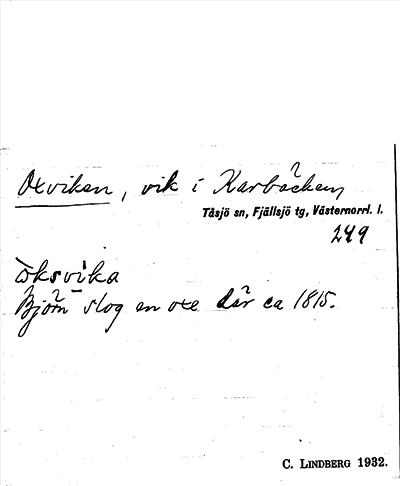 Oxviken, vik i Karbäcken
Tåsjö sn, Fjällsjö tg, Västernorrl. l.
249
òksvìka
Björn slog en oxe där ca 1815.
C. LINDBERG 1932.